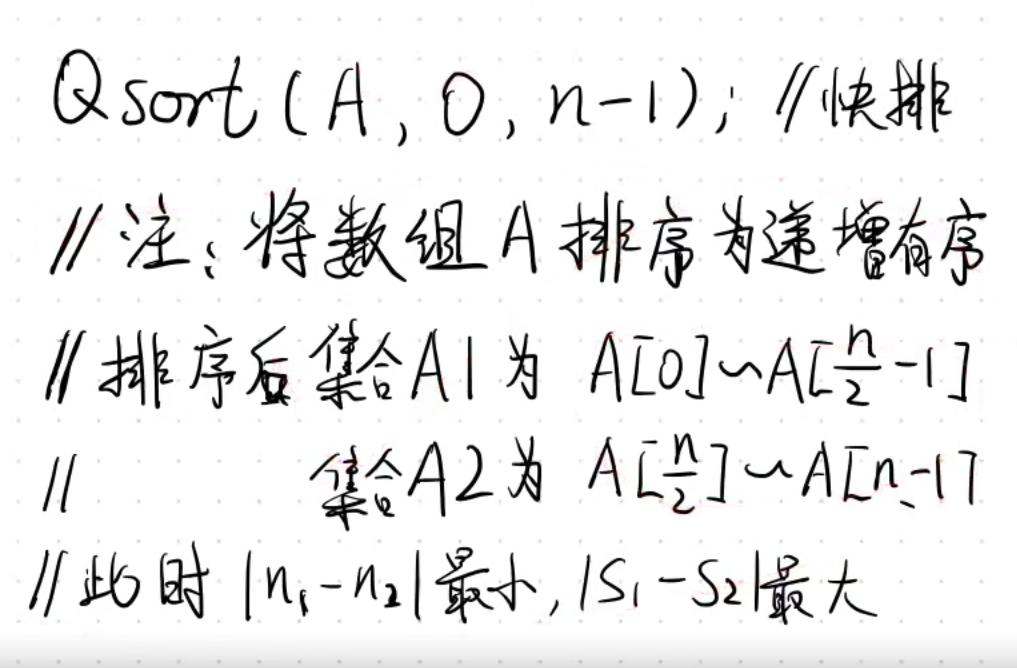 Qsort(A, 0, n-1); //快排
//注:将数组A排序为递增有序
//排序后集合A1为 A[0]~A[n/2-1]
// 集合A2为 A[n/2]~A[n-1]
//此时|n₁-n₂|最小,|S₁-S₂|最大